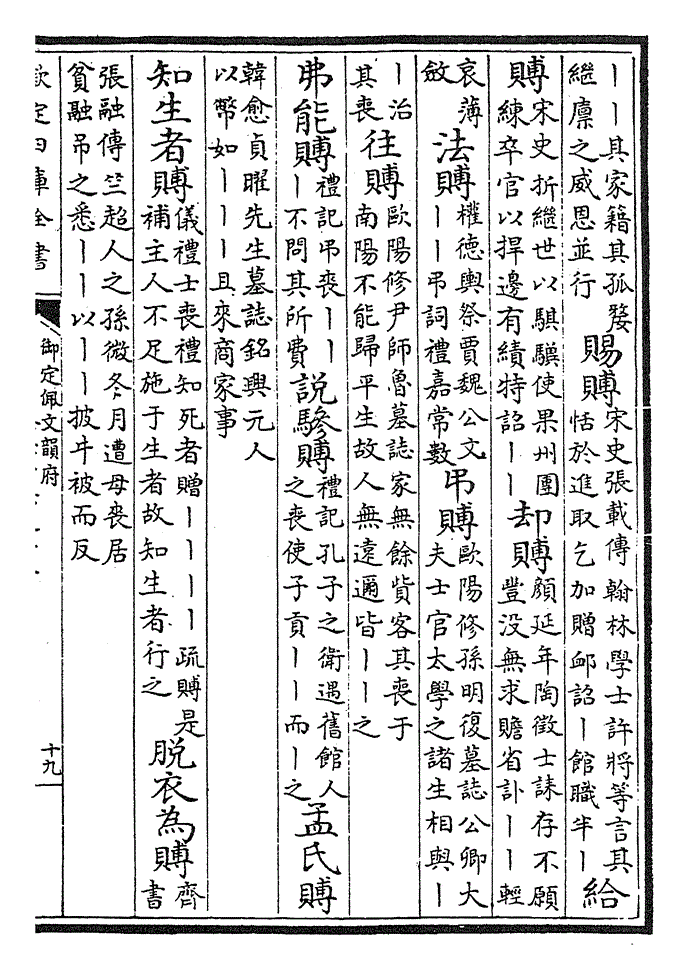 丨丨其家籍其孤嫠繼廩之威恩並行賜賻宋史張載傳翰林學士許將等言其恬於進取乞加贈卹詔丨館職半丨給
賻宋史折繼世以騏驥使果州團練卒官以捍邊有績特詔丨丨却賻顔延年陶徵士誄存不願豐没無求贍省訃丨丨輕
哀薄斂法賻權德輿祭賈魏公文丨丨弔詞禮嘉常數弔賻歐陽修孫明復墓誌公卿大夫士官太學之諸生相與丨
丨治其喪往賻歐陽修尹師魯墓誌家無餘貲客其喪于南陽不能歸平生故人無遠邇皆丨丨之
弗能賻禮記弔喪丨丨丨不問其所費説驂賻禮記孔子之衛遇舊館人之喪使子貢丨丨而丨之孟氏賻
韓愈貞曜先生墓誌銘興元人以幣如丨丨丨且來商家事
知生者賻儀禮士喪禮知死者贈丨丨丨丨疏賻是補主人不足施于生者故知生者行之脱衣為賻齊書
張融傳竺超人之孫微冬月遭母喪居貧融弔之悉丨丨以丨丨披牛被而反
欽定四庫全書
御定佩文韻府
十九